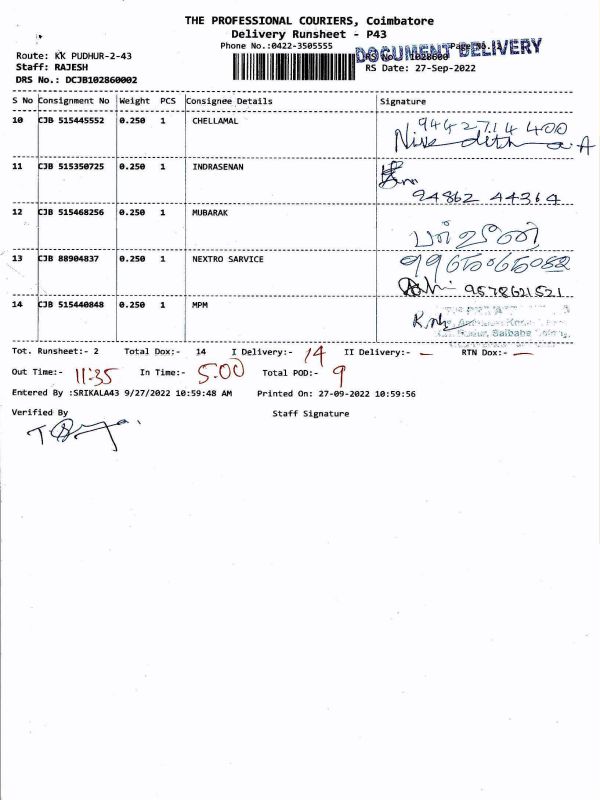 THE PROFESSIONAL COURIERS, Coimbatore
Delivery Runsheet - P43
Phone No.:0422-3505555
DOCUMENT DELIVERY
Route: KK PUDHUR-2-43
Staff: RAJESH
RS Date: 27-Sep-2022
DRS No.: DCJB102860002
S No Consignment No Weight PCS Consignee Details Signature
10 CJB 515445552 0.250 1 CHELLAMAL 9442714400
11 CJB 515350725 0.250 1 INDRASENAN
94862 44364
12 CJB 515468256 0.250 1 MUBARAK
13 CJB 88904837 0.250 1 NEXTRO SARVICE
9578621521
14 CJB 515440848 0.250 1 MPM
Saibaba Colony,
Tot. Runsheet:- 2 Total Dox:- 14 I Delivery:- 14 II Delivery:- — RTN Dox:- —
Out Time:- 11:35 In Time:- 5:00 Total POD:- 9
Entered By :SRIKALA43 9/27/2022 10:59:48 AM Printed On: 27-09-2022 10:59:56
Verified By Staff Signature